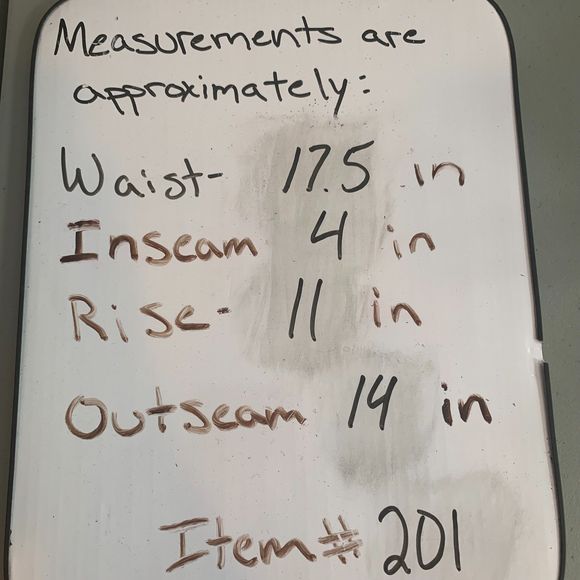 Measurements are
approximately:
Waist- 17.5 in
Inseam 4 in
Rise- 11 in
Outseam 14 in
Item# 201